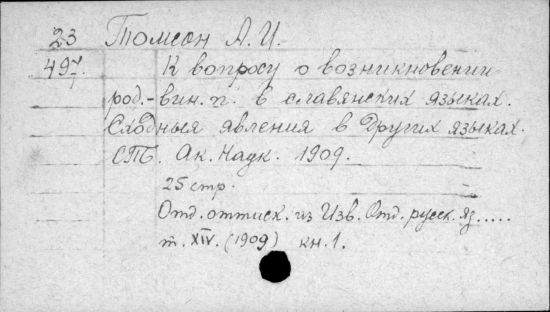 23 Томсон А. И.
497. К вопросу о возникновении
7
род.-вин. п. в славянских языках.
Сходныя явления в других языках.
СПБ. Ак. Наук. 1909.
25 стр.
Отд. оттиск. из Изв. Отд. русск. яз.....
т. XIV. (1909) кн. 1.